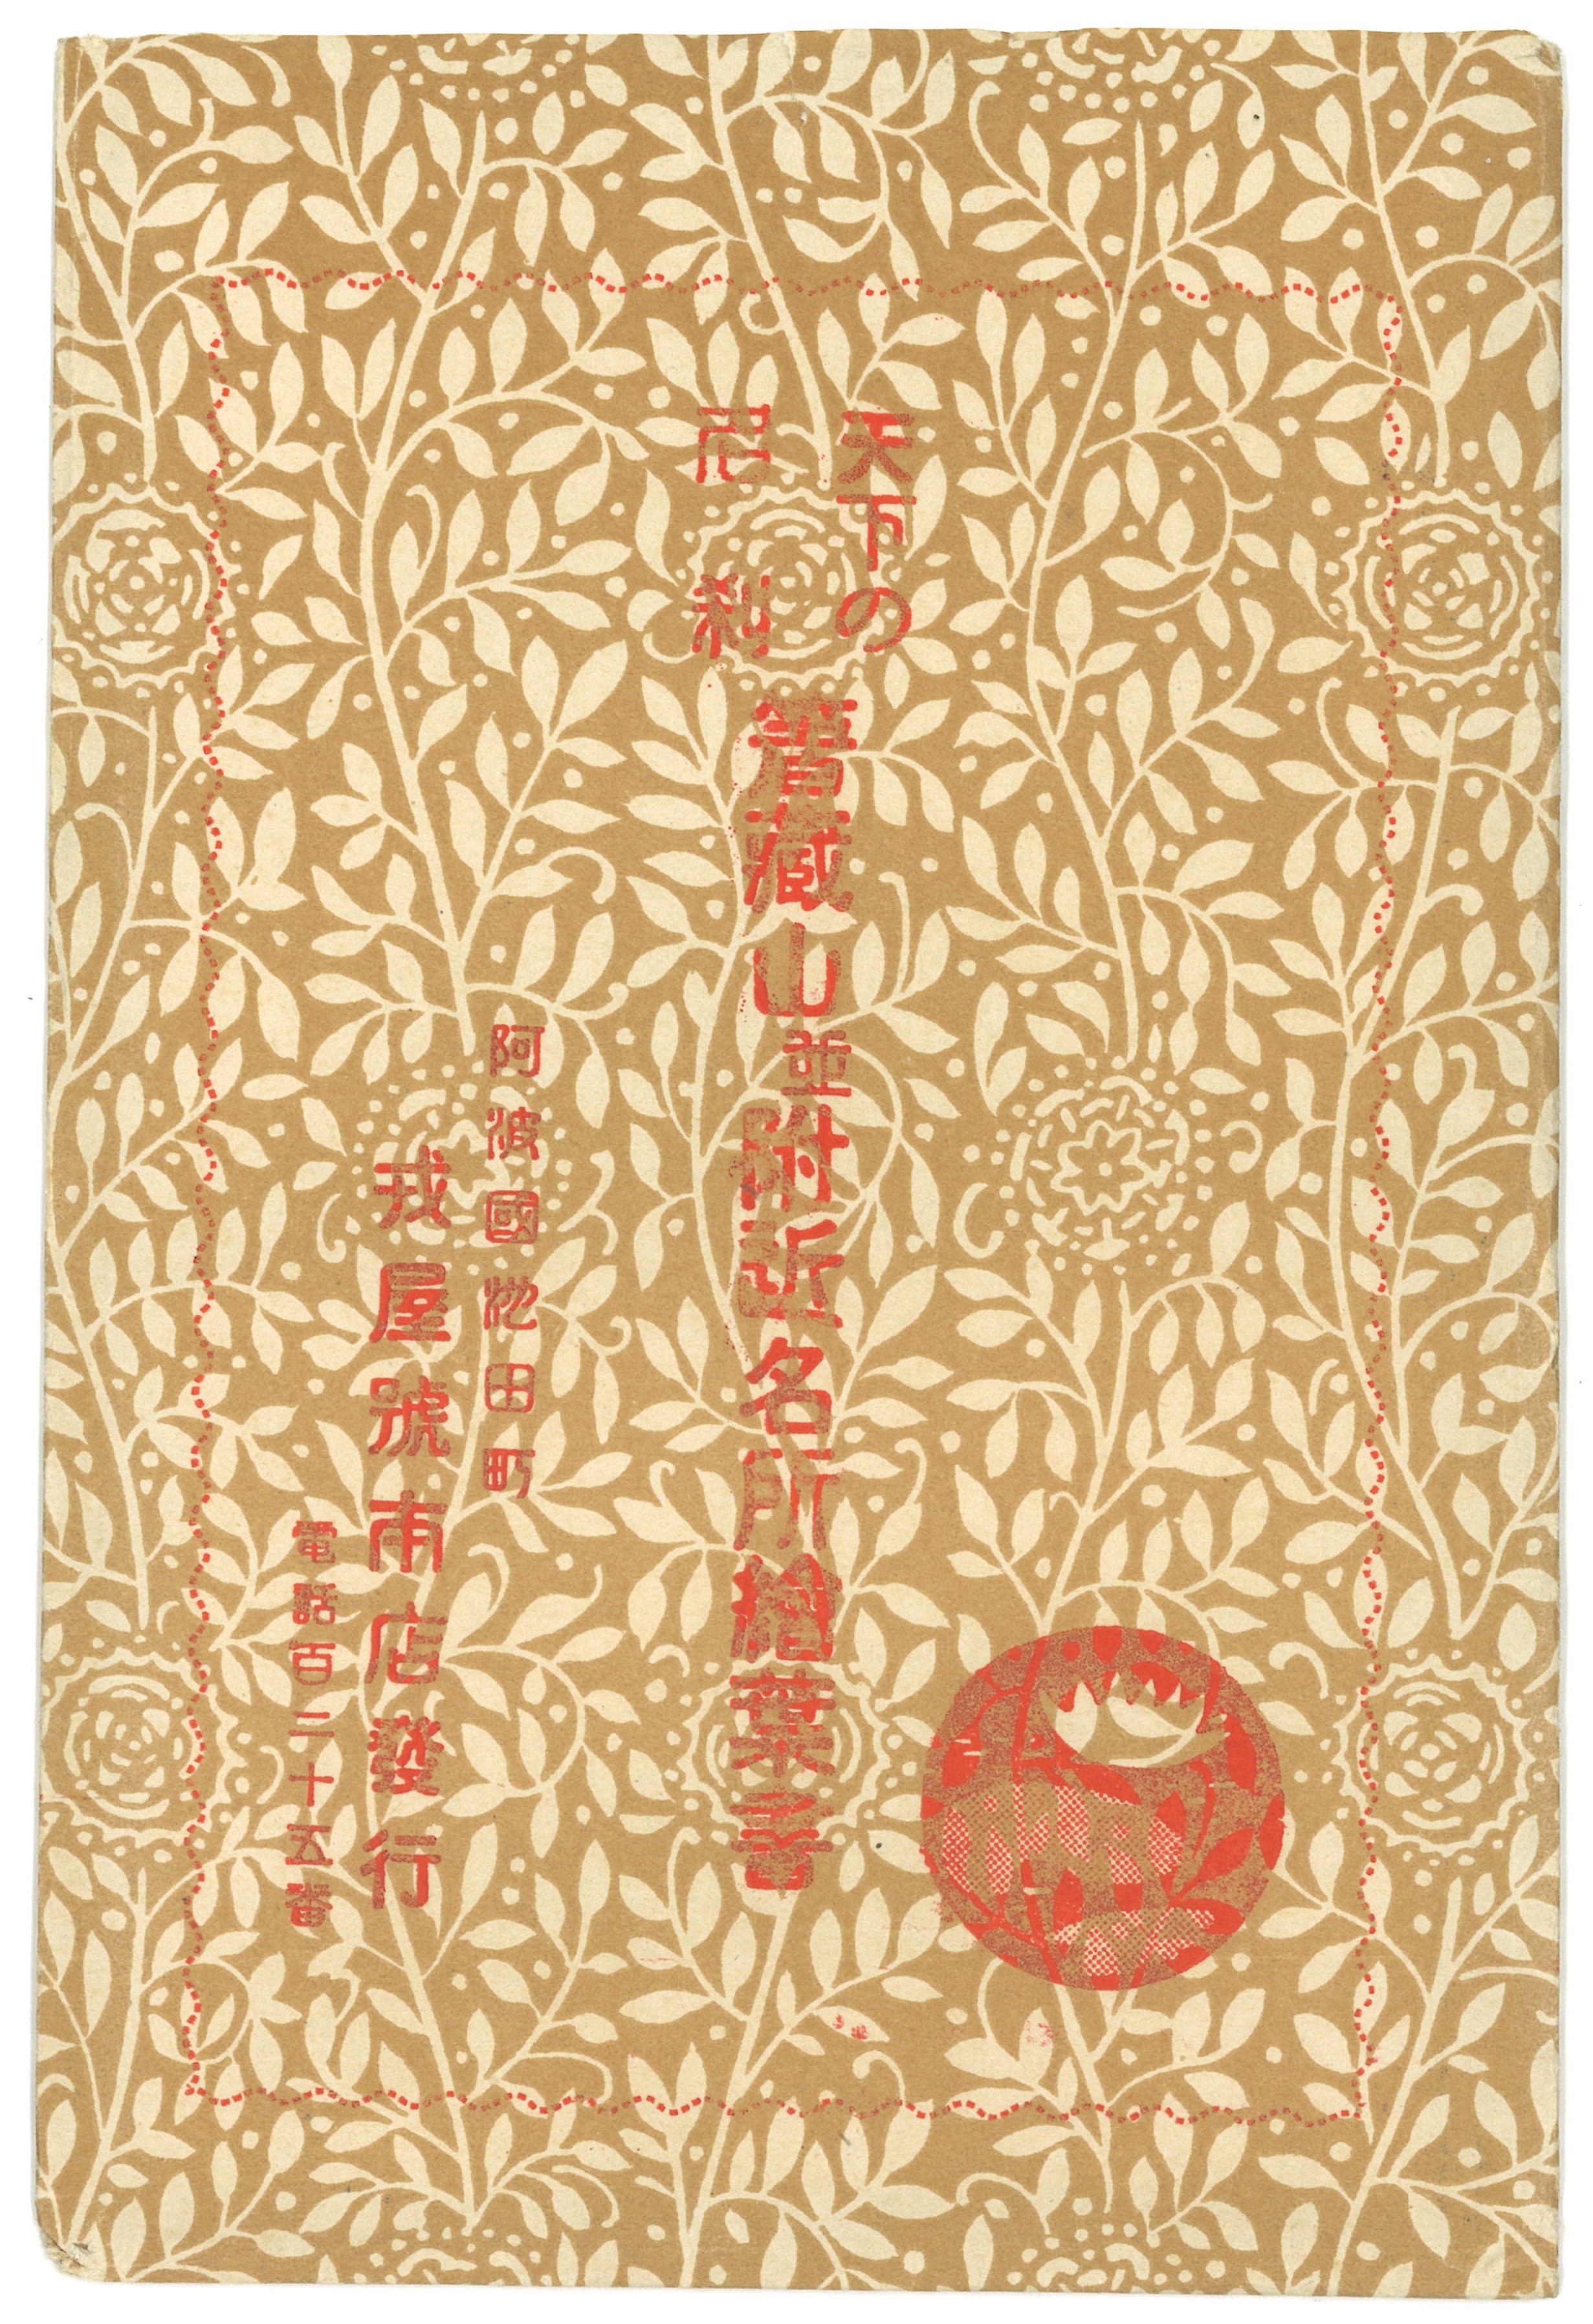 天下の
巨刹
箸藏山並附近名所繪葉書
阿波國池田町
戎屋號商店發行
電話百二十五番